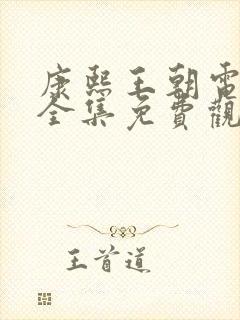 康熙王朝電
全集免費觀
王首道